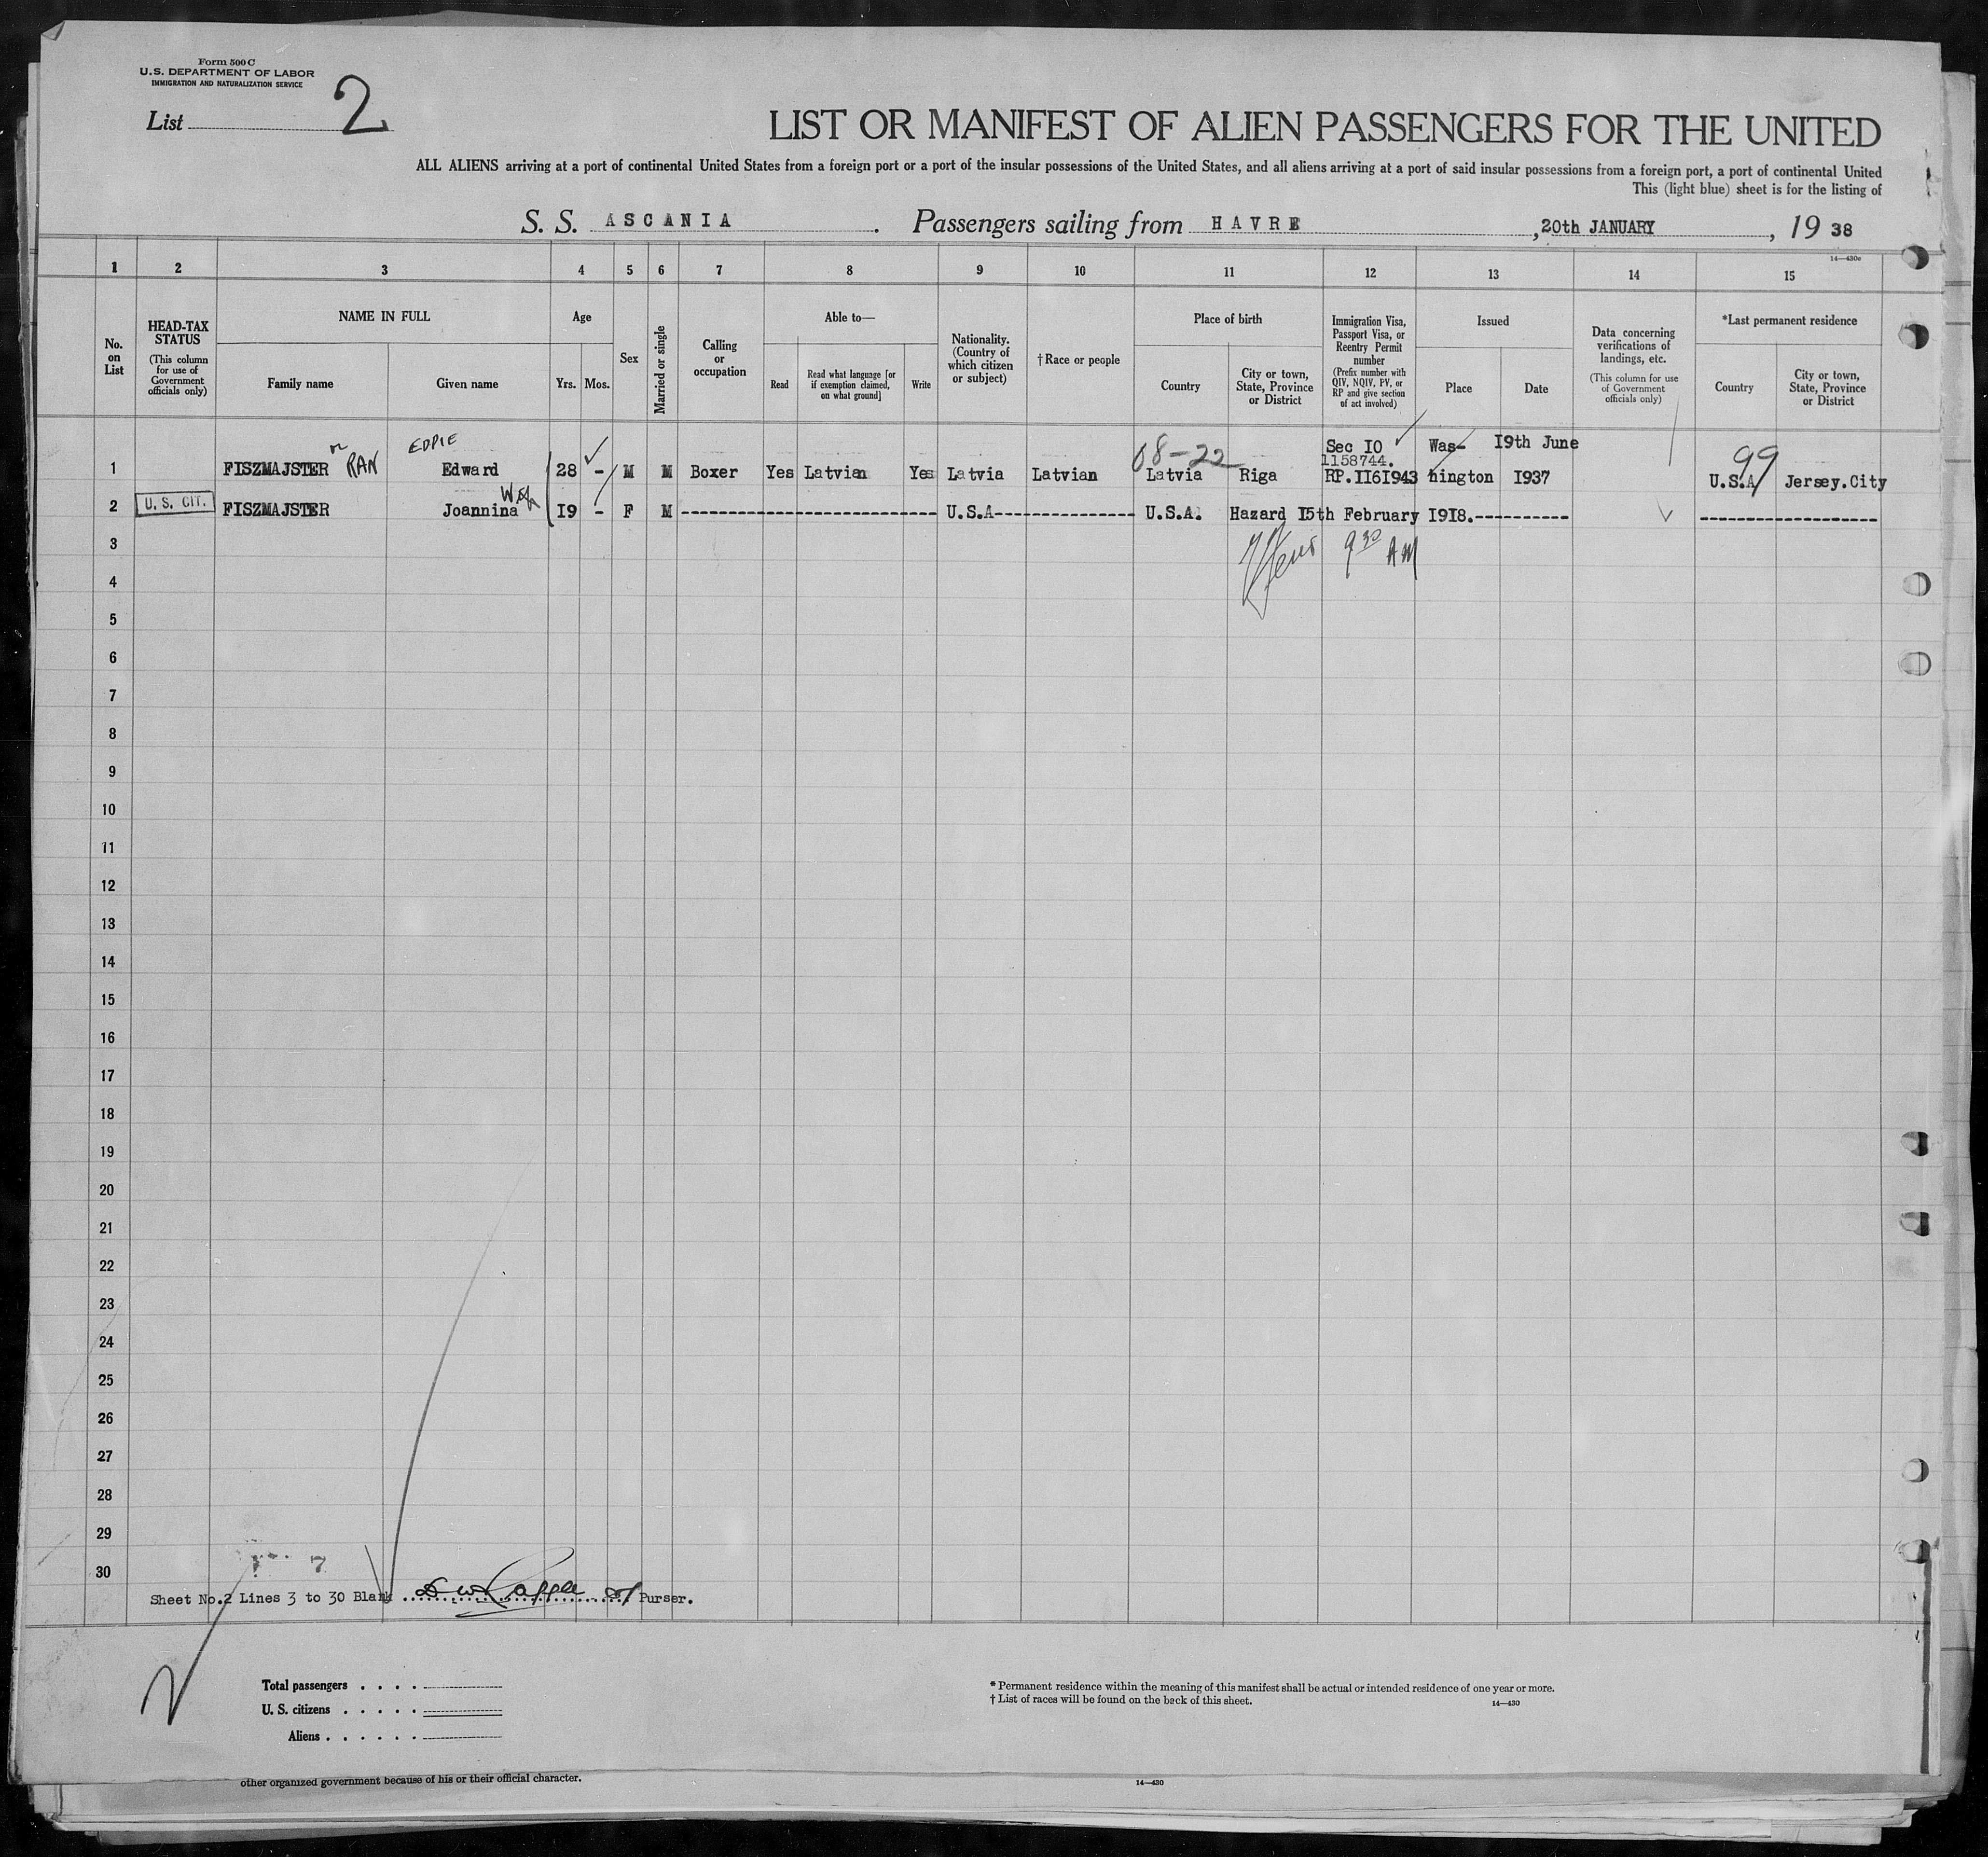 Form 500 C
U.S. DEPARTMENT OF LABOR
IMMIGRATION AND NATURALIZATION SERVICE
List 2
LIST OR MANIFEST OF ALIEN PASSENGERS FOR THE UNITED
ALL ALIENS arriving at a port of continental United States from a foreign port or a port of the insular possessions of the United States, and all aliens arriving at a port of said insular possessions from a foreign port, a port of continental United
This (light blue) sheet is for the listing of
S. S. ASCANIA. Passengers sailing from HAVRE, 20th JANUARY, 19 38
14—430c
1 2 3 4 5 6 7 8 9 10 11 12 13 14 15
No. on List
HEAD-TAX STATUS
(This column for use of Government officials only)
NAME IN FULL
Family name
Given name
Age
Yrs. Mos.
Sex
Married or single
Calling or occupation
Able to—
Read
Read what language [or if exemption claimed, on what ground]
Write
Nationality. (Country of which citizen or subject)
†Race or people
Place of birth
Country
City or town, State, Province or District
Immigration Visa, Passport Visa, or Reentry Permit number
(Prefix number with QIV, NQIV, PV, or RP and give section of act involved)
Issued
Place
Date
Data concerning verifications of landings, etc.
(This column for use of Government officials only)
*Last permanent residence
Country
City or town, State, Province or District
EDDIE
08-22
Sec I0
Was-
I9th June
99
1158744.
1 FISZMAJSTER or RAN Edward 28 - M M Boxer Yes Latvian Yes Latvia Latvian Latvia Riga RP.II6I943 hington I937 U.S.A Jersey.City
Wife
2 U. S. CIT. FISZMAJSTER Joannina I9 - F M U.S.A U.S.A. Hazard I5th February I9I8.
3
9 30 AM
4
5
6
7
8
9
10
11
12
13
14
15
16
17
18
19
20
21
22
23
24
25
26
27
28
29
30
7
Sheet No.2 Lines 3 to 30 Blank Purser.
Total passengers
U. S. citizens
Aliens
* Permanent residence within the meaning of this manifest shall be actual or intended residence of one year or more.
† List of races will be found on the back of this sheet.
14—430
other organized government because of his or their official character.
14—430